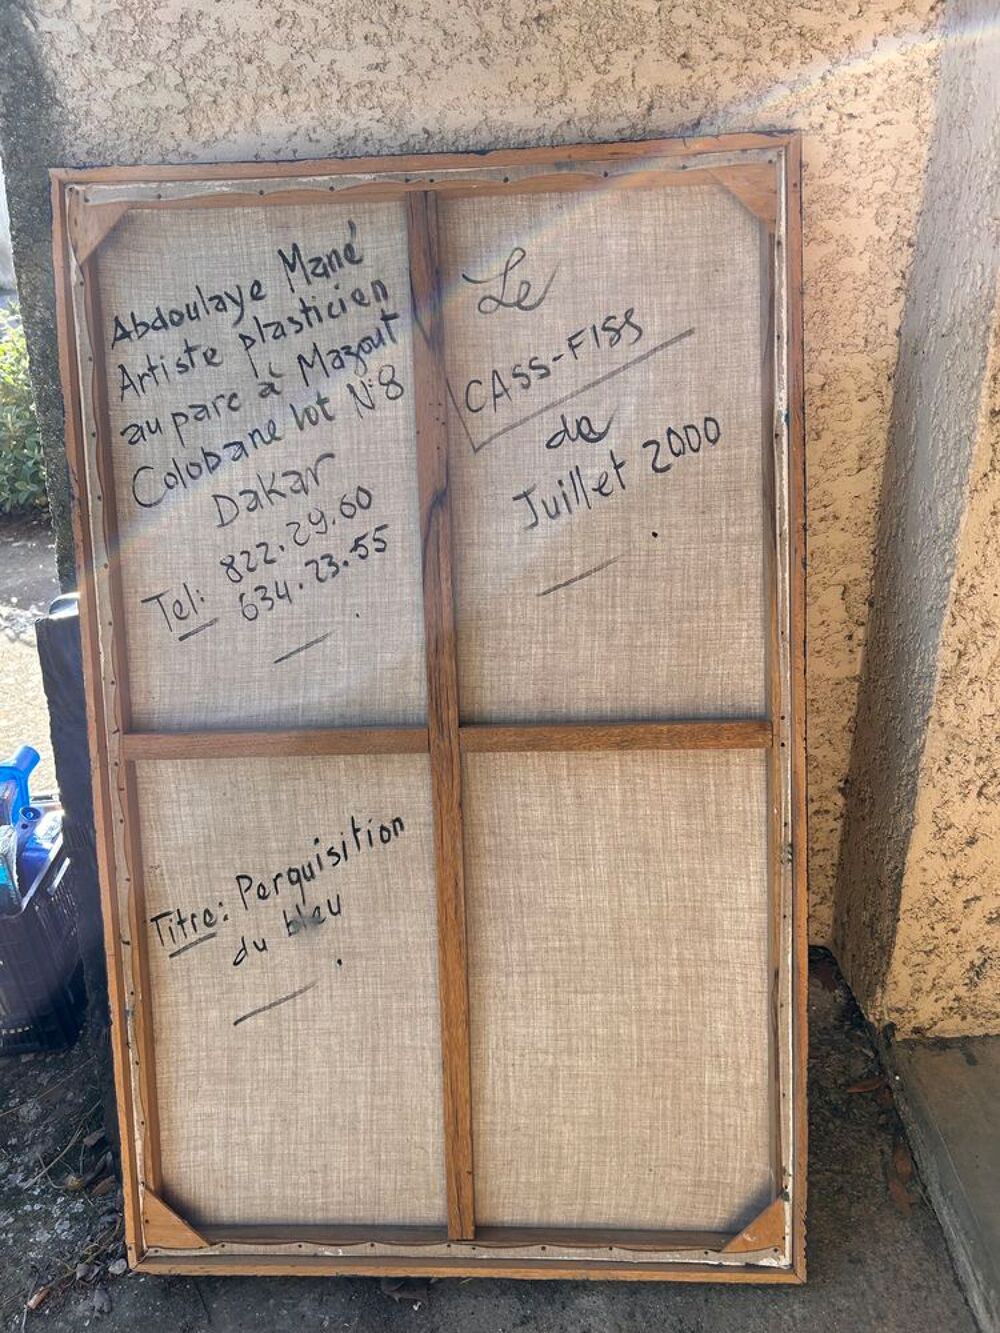 Abdoulaye Mané
Artiste plasticien
au parc à Mazout
Colobane lot N:8
Dakar
Tel: 822.29.60
634.23.55
Le
CASS-FISS
de
Juillet 2000
Titre: Perquisition
du bleu